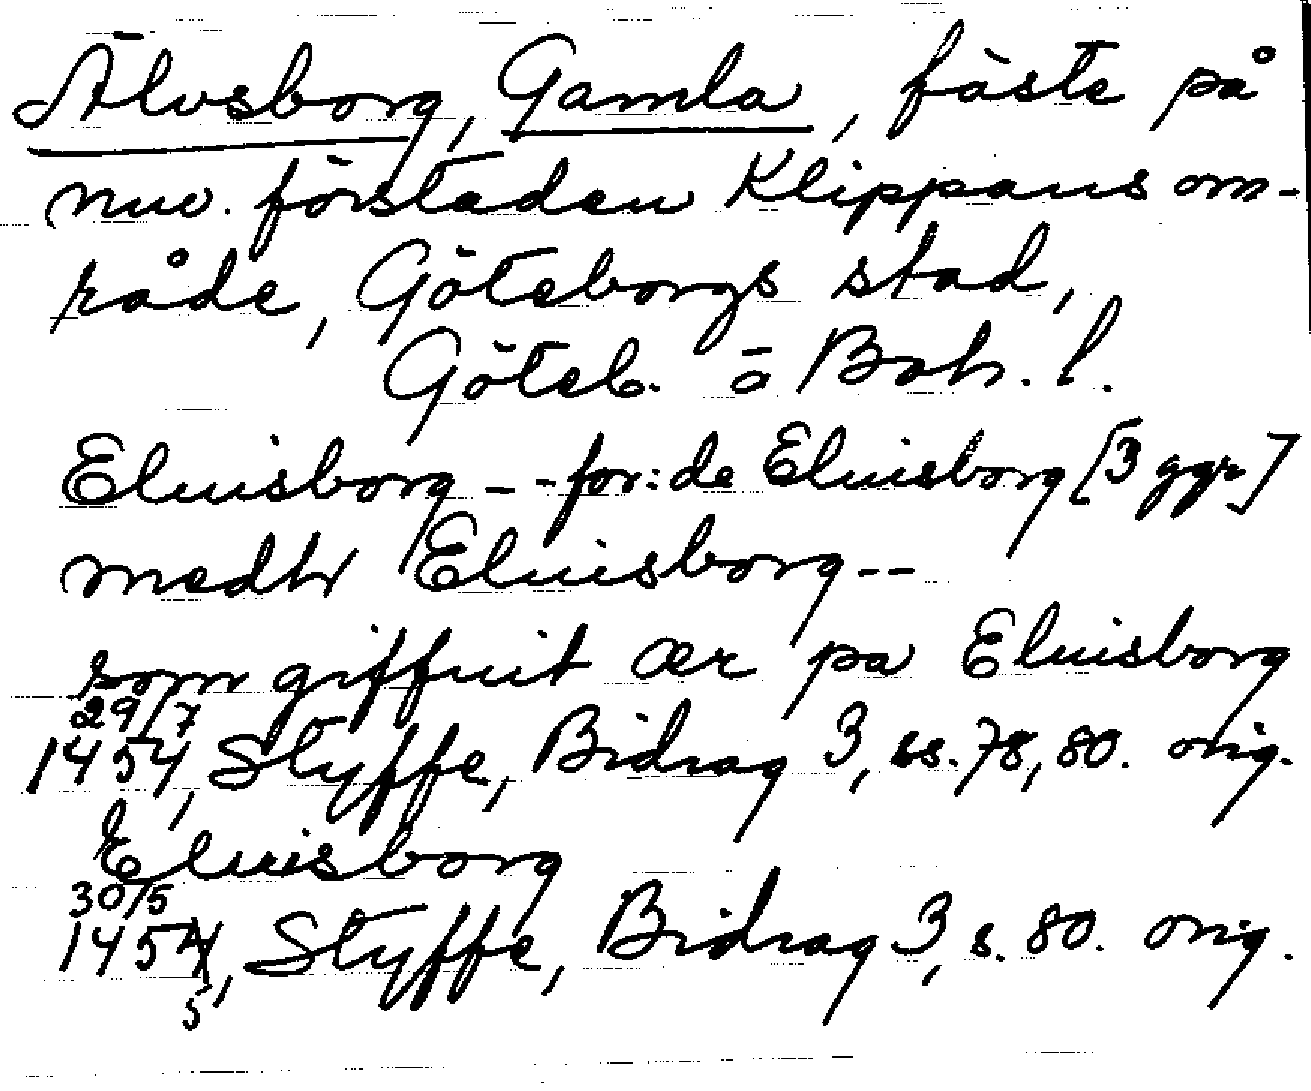 Älvsborg, Gamla, fäste på
nuv. förstaden Klippans om-
råde, Göteborgs stad,
Göteb. o Boh. l.
Eluisborg -- for: de Eluisborg [3 ggr]
medh Eluisborg --
som giffuit ær pa Eluisborg
29/7
1454, Styffe, Bidrag 3, ss. 78, 80. orig.
Eluisborg
30/5
1454, Styffe, Bidrag 3, s. 80. orig.
5